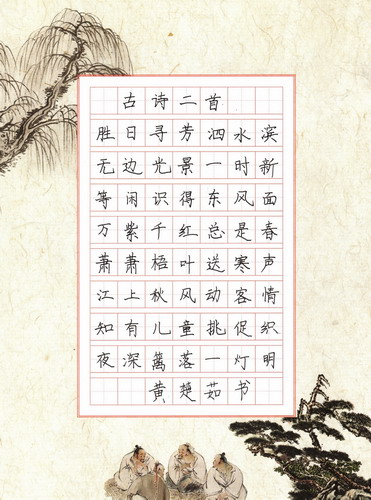 古诗二首
胜日寻芳泗水滨
无边光景一时新
等闲识得东风面
万紫千红总是春
萧萧梧叶送寒声
江上秋风动客情
知有儿童挑促织
夜深篱落一灯明
黄楚茹书